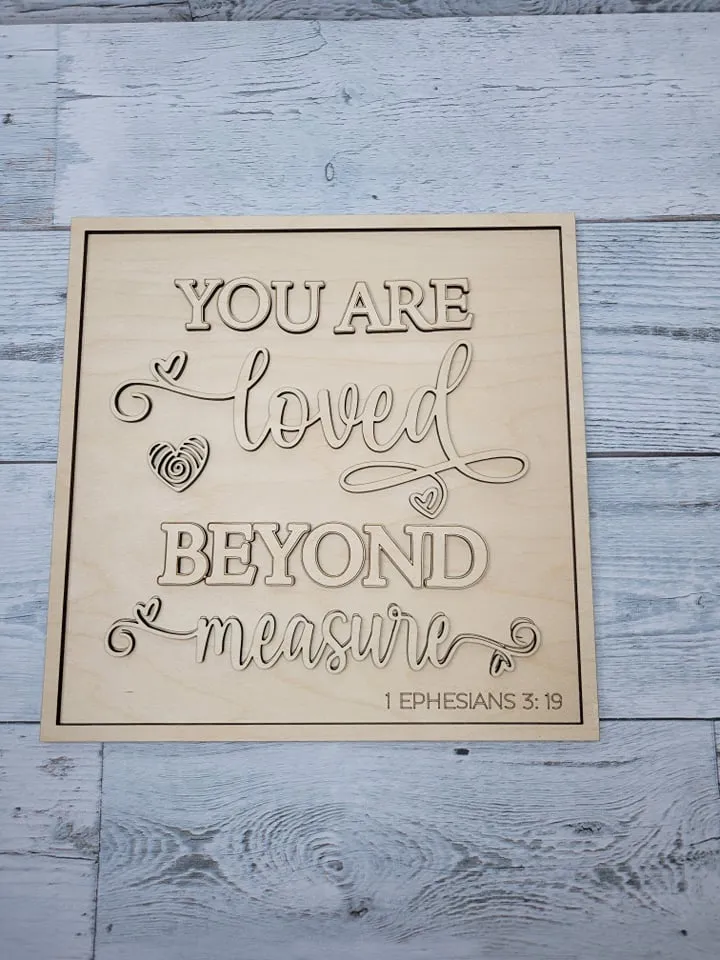 YOU ARE
loved
BEYOND
measure
1 EPHESIANS 3: 19